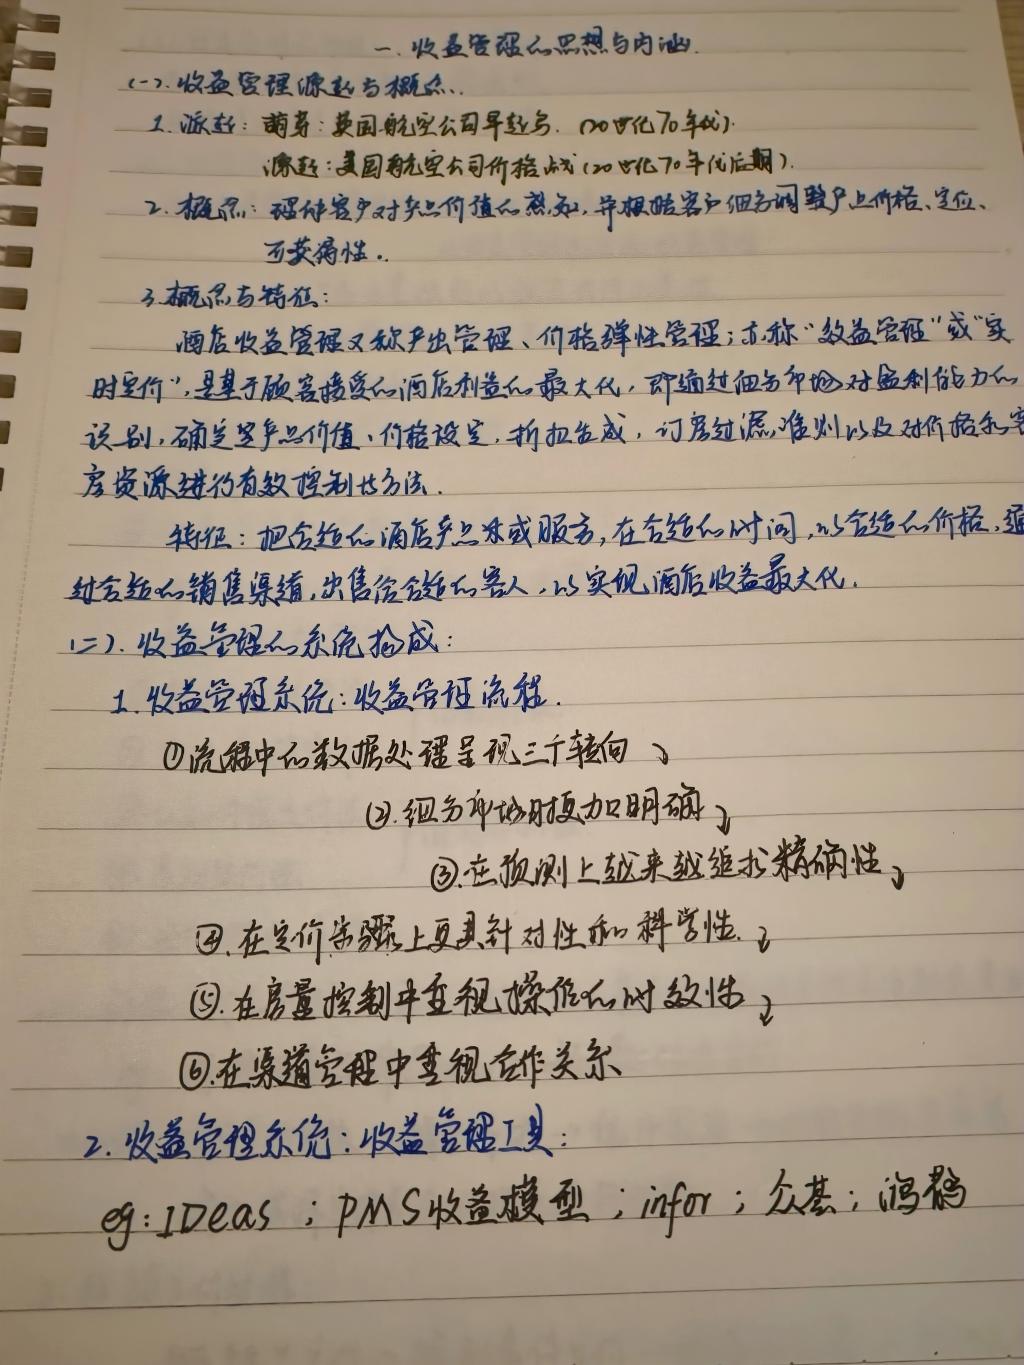 一.收益管理的思想与内涵.
(一).收益管理源起与概念.
1.源起:萌芽:英国航空公司早起鸟.(20世纪70年代).
源起:美国航空公司价格战(20世纪70年代后期).
2.概念:理解客户对产品价值的感知,并根据客户细分调整产品价格、定位、
可获得性.
3.概念与特征:
酒店收益管理又称产出管理、价格弹性管理;亦称"效益管理"或"实
时定价",是基于顾客接受的酒店利益的最大化,即通过细分市场对盈利能力的
识别,确定产品价值、价格设定,折扣生成,订房过滤准则以及对价格和客
房资源进行有效控制的方法.
特征:把合适的酒店产品或服务,在合适的时间,以合适的价格,通
过合适的销售渠道,出售给合适的客人,以实现酒店收益最大化.
(二).收益管理的系统构成:
1.收益管理系统:收益管理流程.
①流程中的数据处理呈现三个转向
②.细分市场时更加明确
③.在预测上越来越追求精确性
④.在定价策略上更具针对性和科学性.
⑤.在房量控制中重视操作的时效性
⑥.在渠道管理中重视合作关系
2.收益管理系统:收益管理工具:
eg:IDeas;PMS收益模型;infor;众荟;鸿鹊